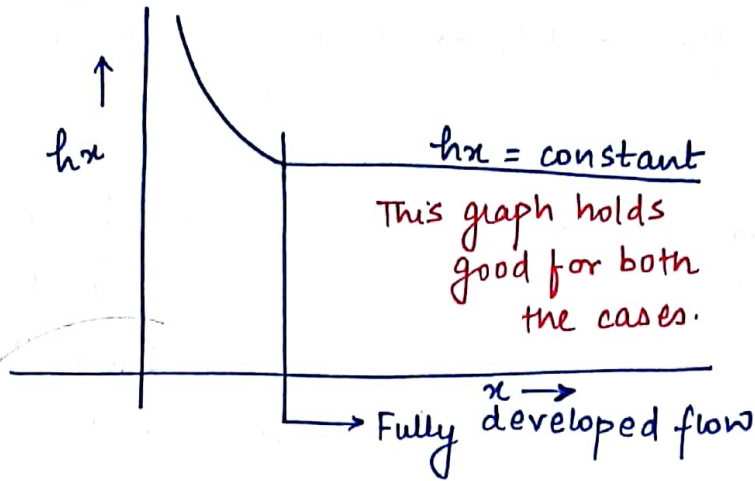 hx
hx = constant
This graph holds
good for both
the cases.
x →
Fully developed flow